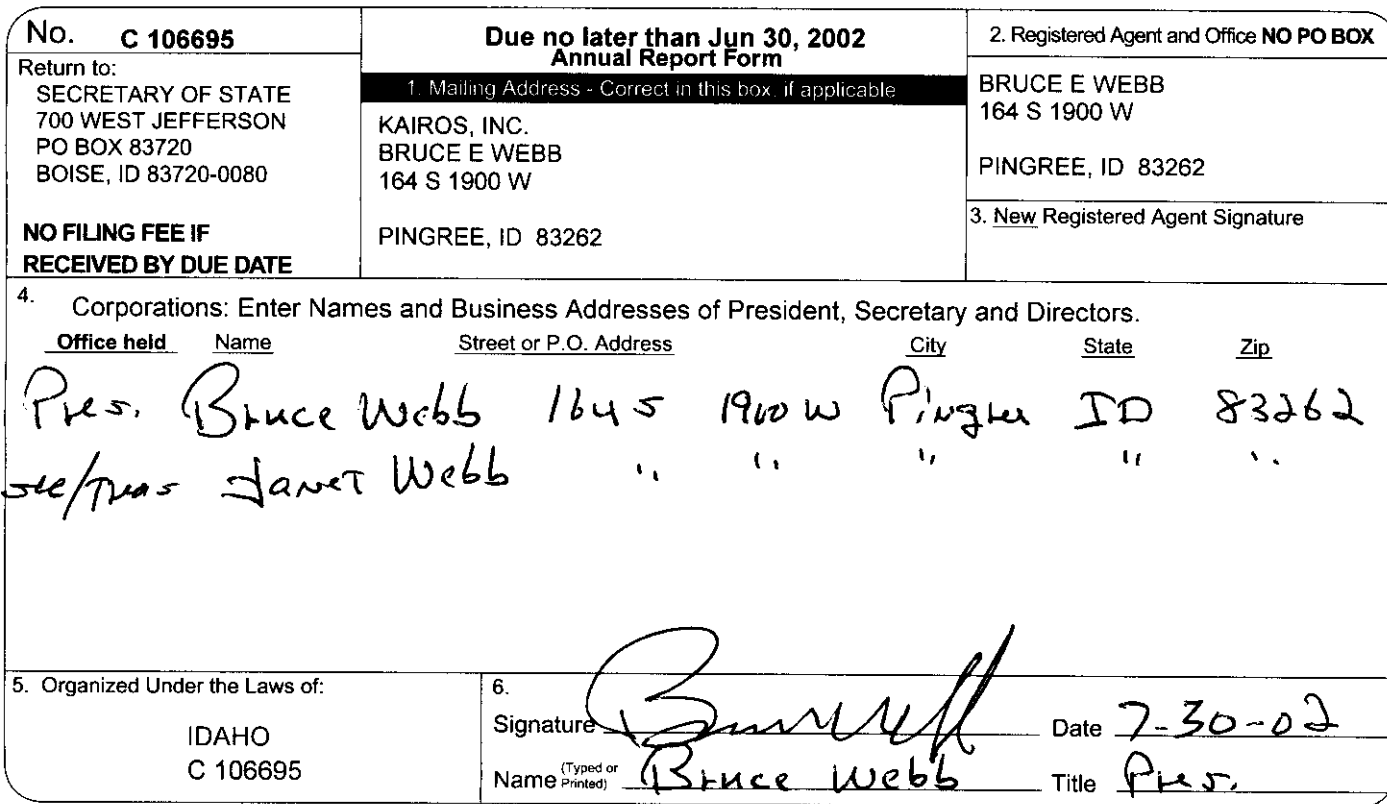 No. C 106695
Return to:
SECRETARY OF STATE
700 WEST JEFFERSON
PO BOX 83720
BOISE, ID 83720-0080
NO FILING FEE IF
RECEIVED BY DUE DATE
Due no later than Jun 30, 2002
Annual Report Form
1. Mailing Address - Correct in this box, if applicable
KAIROS, INC.
BRUCE E WEBB
164 S 1900 W
PINGREE, ID 83262
2. Registered Agent and Office NO PO BOX
BRUCE E WEBB
164 S 1900 W
PINGREE, ID 83262
3. New Registered Agent Signature
4. Corporations: Enter Names and Business Addresses of President, Secretary and Directors.
Office held Name Street or P.O. Address City State Zip
Pres. Bruce Webb 164 S 1900 W Pingree ID 83262
sec/treas Janet Webb " " " " "
5. Organized Under the Laws of:
IDAHO
C 106695
6.
Signature Bruce Webb Date 7-30-02
Name (Typed or Printed) Bruce Webb Title Pres.